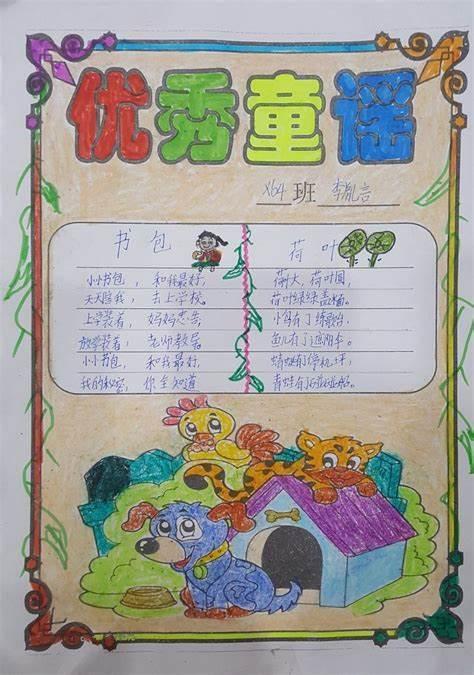 优秀童谣
X64班 李胤言
书包
小小书包，和我最好，
天天陪我，去上学校。
上学装着，妈妈忠告，
放学装着，老师教导。
小小书包，和我最好，
我的秘密，你全知道
荷叶
荷叶大，荷叶圆，
荷叶绿绿盖
小鸟有了练歌台，
鱼儿有了遮雨伞。
蜻蜓有停机坪，
青蛙有